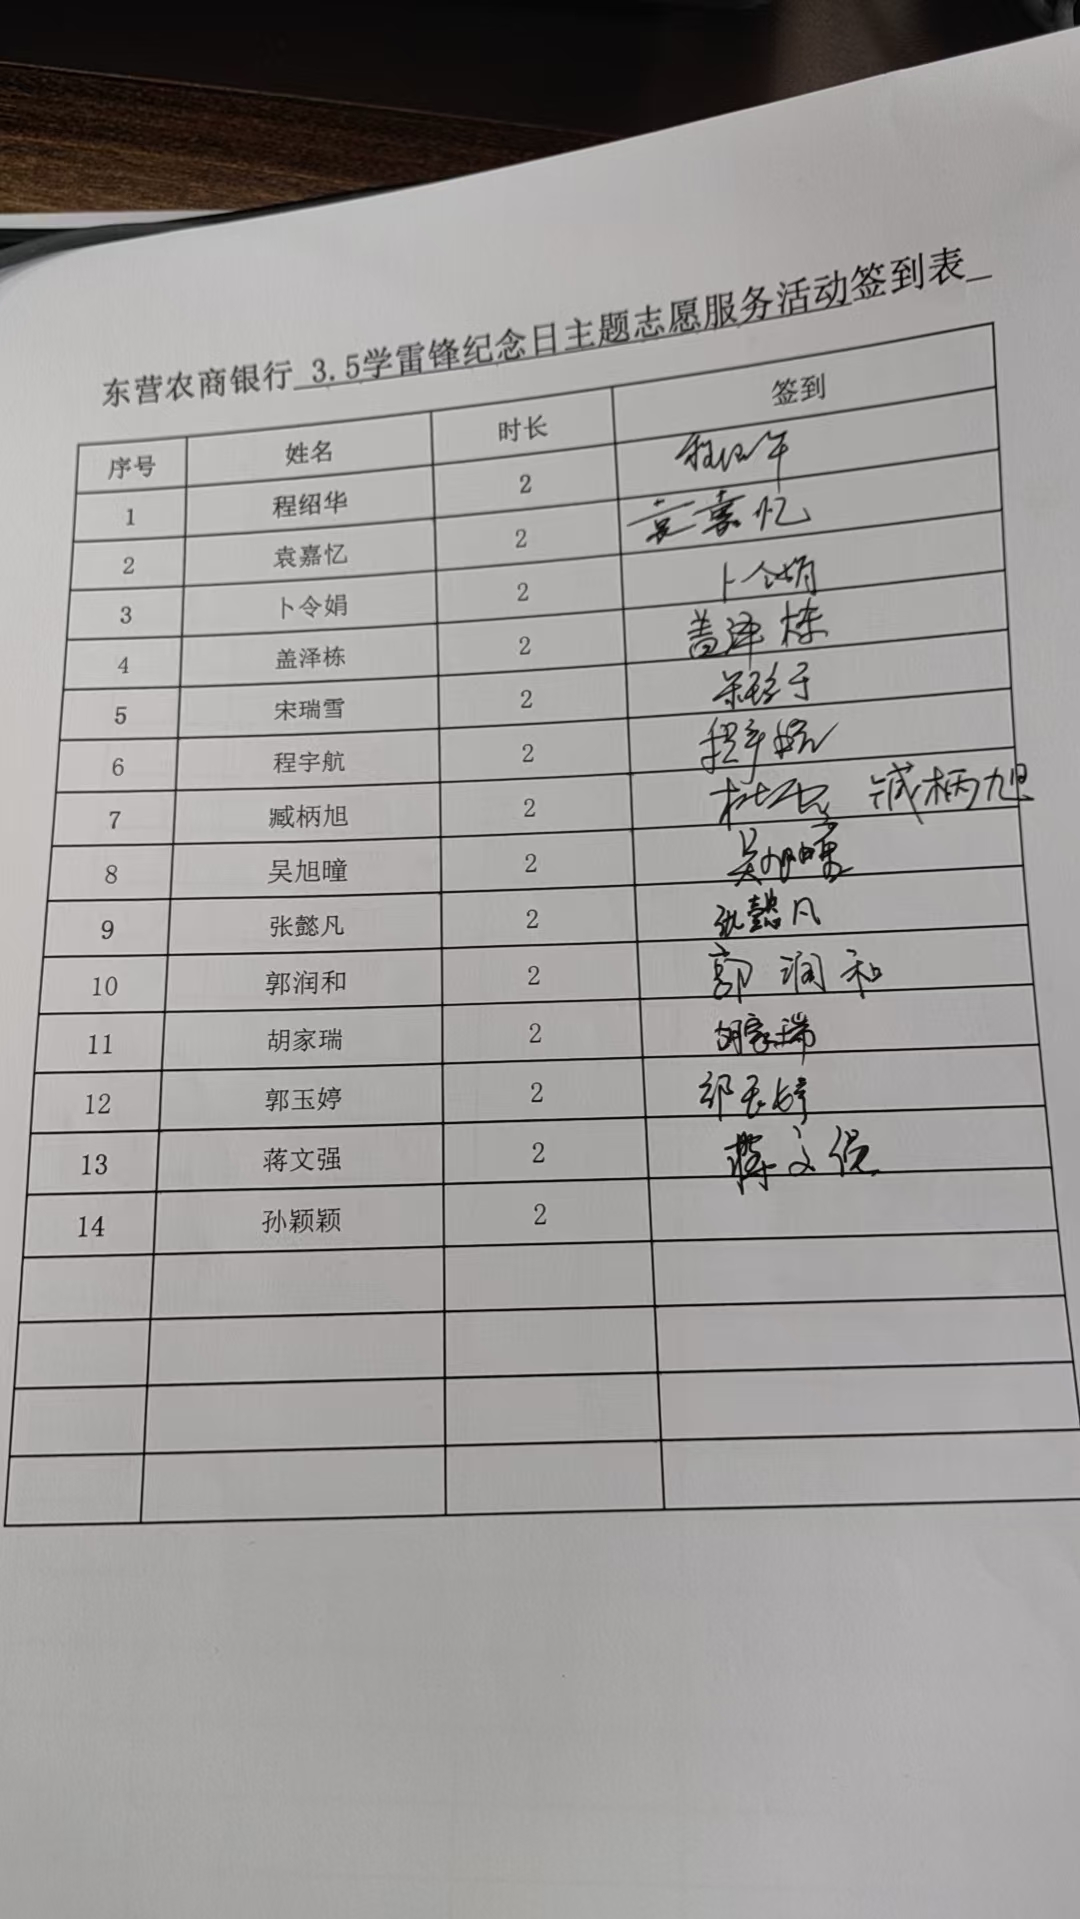 东营农商银行 3.5学雷锋纪念日主题志愿服务活动签到表
序号 姓名 时长 签到
1 程绍华 2
2 袁嘉忆 2 袁嘉忆
3 卜令娟 2 卜令娟
4 盖泽栋 2 盖泽栋
5 宋瑞雪 2
6 程宇航 2 程宇航
7 臧柄旭 2 臧柄旭
8 吴旭曈 2 吴旭曈
9 张懿凡 2 张懿凡
10 郭润和 2 郭润和
11 胡家瑞 2 胡家瑞
12 郭玉婷 2 郭玉婷
13 蒋文强 2 蒋文强
14 孙颖颖 2